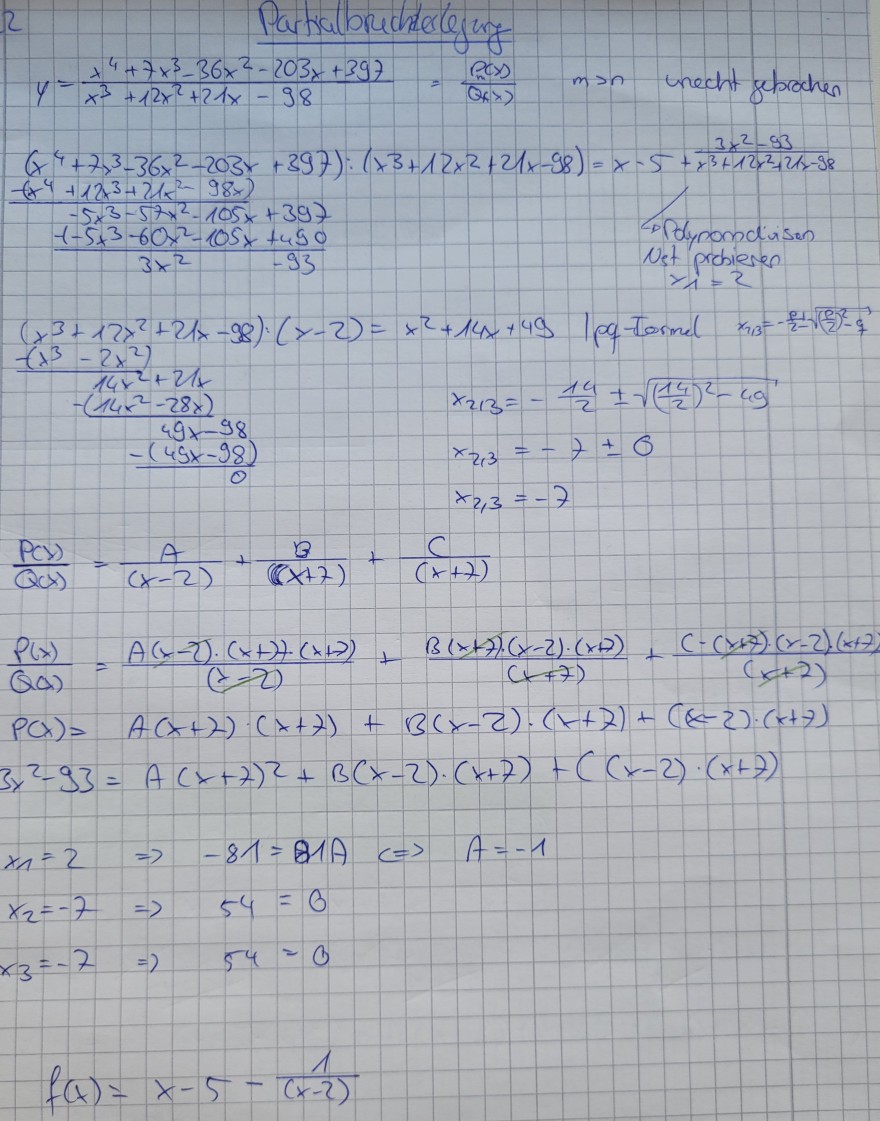 2 Partialbruchzerlegung
y = (x⁴+7x³-36x²-203x+397)/(x³+12x²+21x-98) = P(x)/Q(x) m>n unecht gebrochen
(x⁴+7x³-36x²-203x+397):(x³+12x²+21x-98) = x-5+(3x²-93)/(x³+12x²+21x-98)
-(x⁴+12x³+21x²-98x)
-5x³-57x²-105x+397
-(-5x³-60x²-105x+490
3x² -93
Polynomdivison
Nst probieren
x1 = 2
(x³+12x²+21x-98):(x-2) = x²+14x+49 | pq-Formel x2/3 = -p/2±√((p/2)²-q)
-(x³-2x²)
14x²+21x
-(14x²-28x)
49x-98
-(49x-98)
0
x2,3 = -14/2 ± √((14/2)²-49)
x2,3 = -7 ± 0
x2,3 = -7
P(x)/Q(x) = A/(x-2) + B/(x+7) + C/(x+7)
P(x)/Q(x) = A(x-2)·(x+7)·(x+7)/(x-2) + B(x+7)·(x-2)·(x+7)/(x+7) + C·(x+7)·(x-2)·(x+7)/(x+7)
P(x) = A(x+7)·(x+7) + B(x-2)·(x+7) + C(x-2)·(x+7)
3x²-93 = A(x+7)² + B(x-2)·(x+7) + C(x-2)·(x+7)
x1=2 => -81=81A <=> A=-1
x2=-7 => 54 = 0
x3=-7 => 54 = 0
f(x) = x-5-1/(x-2)